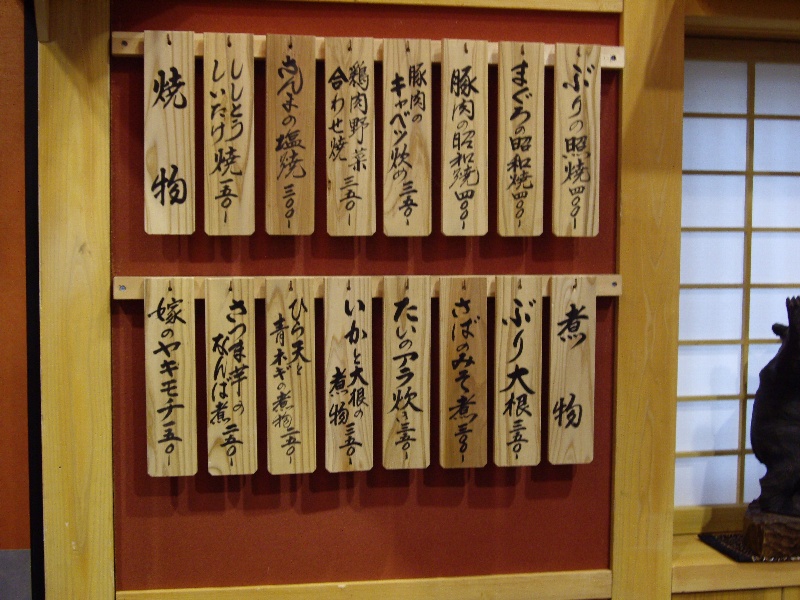 ぶりの照焼 四〇〇ー
まぐろの昭和焼 四〇〇ー
豚肉の昭和焼 四〇〇ー
豚肉の
キャベツ炊め 三五〇ー
鶏肉野菜
合わせ焼 三五〇ー
さんまの塩焼 三〇〇ー
ししとう
しいたけ焼 一五〇ー
焼物
煮物
ぶり大根 三五〇ー
さばのみそ煮 三〇〇ー
たいのアラ炊き 三五〇ー
いかと大根の
煮物 三五〇ー
ひら天と
青ネギの煮物 二五〇ー
さつま芋の
なんば煮 二五〇ー
嫁のヤキモチ 一五〇ー